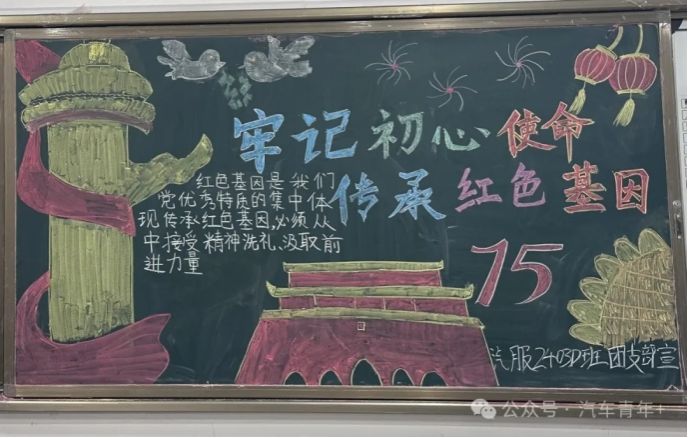 牢记初心使命
传承红色基因
红色基因是我们
党优秀特质的集中体
现传承红色基因,必须从
中接受精神洗礼、汲取前
进力量
75
汽服2403D班团支部宣
公众号·汽车青年+